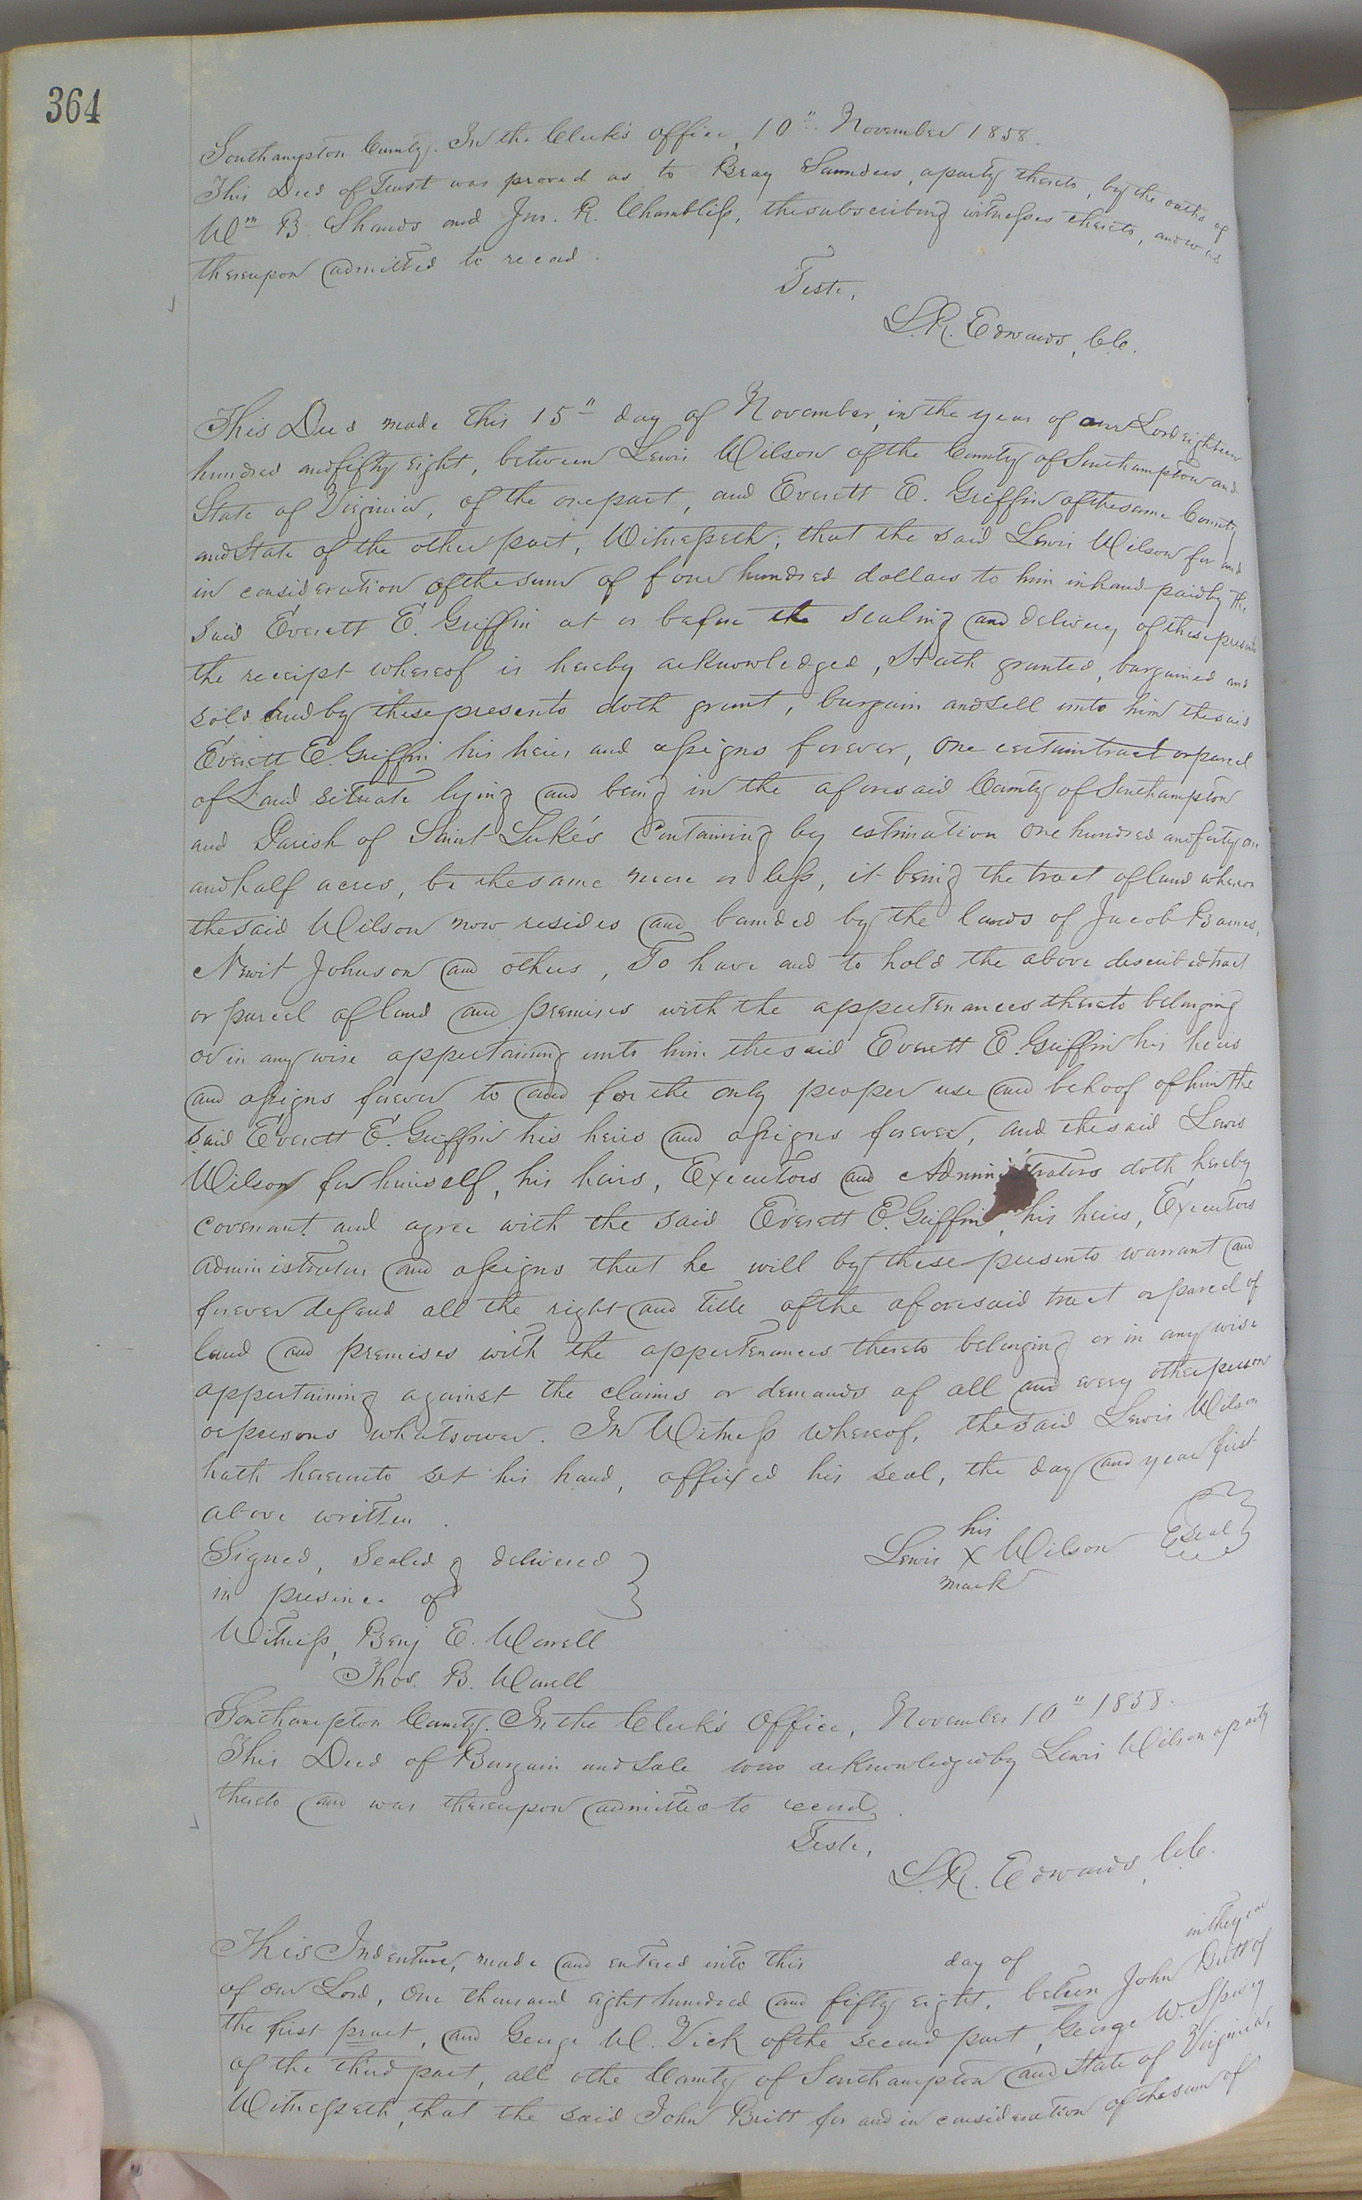 364
Southampton County. In the Clerk's office, 10" November 1858.
This Deed of Trust was proved as to Bray Saunders, a party thereto, by the oaths of
Wm B. Shands and Jno. R. Chambliss, the subscribing witnesses thereto, and was
thereupon admitted to record.
Teste,
L.R. Edwards, C.C.
This Deed made this 15" day of November, in the year of our Lord eighteen
hundred and fifty eight, between Lewis Wilson of the County of Southampton and
State of Virginia, of the one part, and Everett E. Griffin of the same County
and State of the other part, Witnesseth; that the said Lewis Wilson for and
in consideration of the sum of four hundred dollars to him in hand paid by the
said Everett E. Griffin at or before the sealing and delivery of these presents
the receipt whereof is hereby acknowledged, Hath granted, bargained and
sold and by these presents doth grant, bargain and sell unto him the said
Everett E. Griffin his heirs and assigns forever, one certain tract or parcel
of Land situate lying and being in the aforesaid County of Southampton
and Parish of Saint Luke's Containing by estimation one hundred and forty one
and half acres, be the same more or less, it being the tract of land whereon
the said Wilson now resides and bounded by the lands of Jacob Barnes,
Newit Johnson and others, To have and to hold the above described tract
or parcel of land and premises with the appertenances thereto belonging
or in any wise appertaining unto him the said Everett E. Griffin his heirs
and assigns forever to and for the only proper use and behoof of him the
said Everett E. Griffin his heirs and assigns forever, and the said Lewis
Wilson for himself, his heirs, Executors and Administrators doth hereby
covenant and agree with the said Everett E. Griffin, his heirs, Executors
administrators and assigns that he will by these presents warrant and
forever defend all the right and title of the aforesaid tract or parcel of
land and premises with the appertenances thereto belonging or in any wise
appertaining against the claims or demands of all and every other person
or persons whatsoever. In Witness whereof, the said Lewis Wilson
hath hereunto set his hand, affixed his seal, the day and year first
above written.
Signed, sealed & delivered
in presence of
his
Lewis X Wilson Seal
mark
Witness, Benj E. Worrell
Thos. B. Worrell
Southampton County. In the Clerk's Office, November 10" 1858.
This Deed of Bargain and Sale was acknowledged by Lewis Wilson a party
thereto and was thereupon admitted to record.
Teste,
L.R. Edwards, C.C.
This Indenture, made and entered into this day of in the year
of our Lord, One thousand eight hundred and fifty eight, beteen John Britt of
the first prart, and George W. Vick of the second part, George W. Spivey
of the third part, all othe County of Southampton and State of Virginia,
Witnesseth, that the said John Britt for and in consideration of the sum of